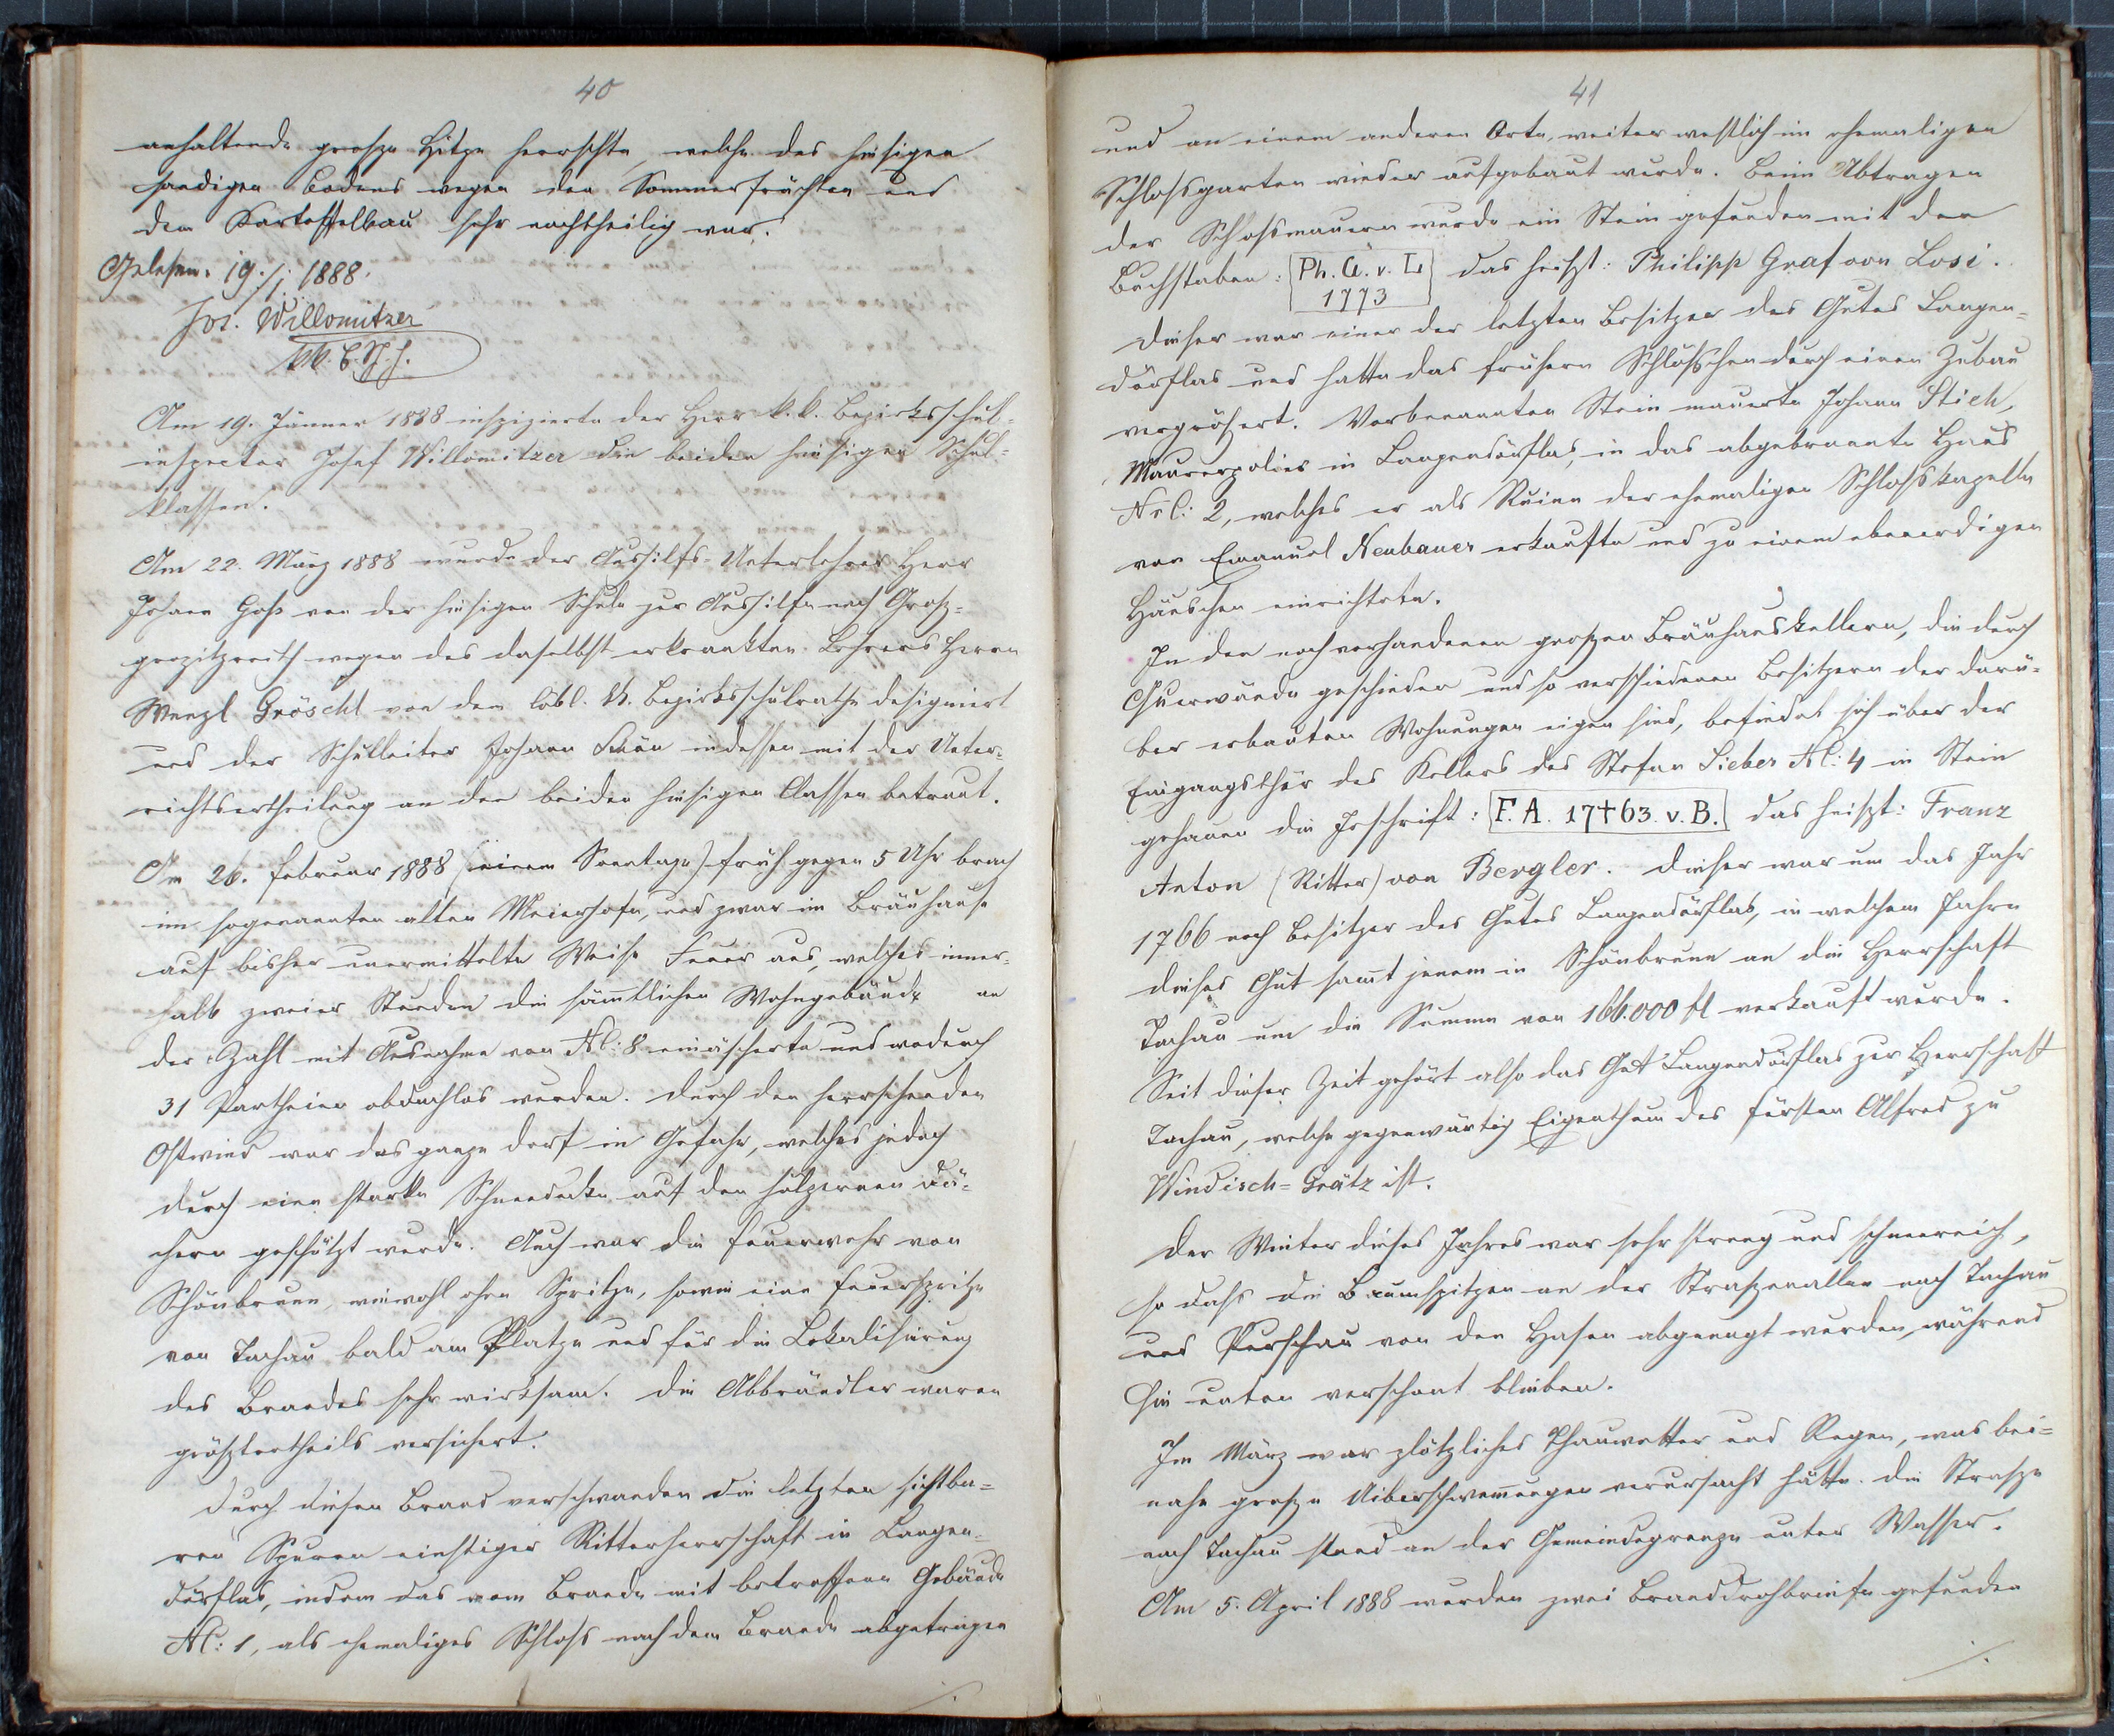 40
anhaltende große Hitze herrschte, welche des hiesigen
sandigen Bodens wegen den Sommerfrüchten und
dem Kartoffelbau sehr nachtheilig war.
Gelesen. 19./1. 1888.
Jos. Willomitzer
kk. B. Sch. J.
Am 19. Jänner 1888 inspizierte der Herr k. k. Bezirksschul-
inspector Josef Willomitzer die beiden hiesigen Schul-
klassen.
Am 22. März 1888 wurde der Aushilfs-Unterlehrer Herr
Johann Goß von der hiesigen Schule zur Aushilfe nach Groß-
gropitzreith wegen des daselbst erkrankten Lehrers Herrn
Wenzl Gröschl von dem löbl. k. Bezirksschulrathe designiert
und der Schulleiter Johann Schön indessen mit der Unter-
richtsertheilung an den beiden hiesigen Classen betraut.
Am 26. Februar 1888 (einem Sonntage) früh gegen 5 Uhr brach
im sogenannten alten Meierhofe, und zwar im Bräuhause
auf bisher unermittelte Weise Feuer aus, welches inner-
halb zweier Stunden die sämmtlichen Wohngebäude an
der Zahl mit Ausnahme von Nc: 8 einäscherte und wodurch
31 Partheien obdachlos wurden. Durch den herrschenden
Ostwind war das ganze Dorf in Gefahr, welches jedoch
durch eine starke Schneedecke auf den hölzernen Dä-
chern geschützt wurde. Auch war die Feuerwehr von
Schönbrunn, wiewohl ohne Spritze, sowie eine Feuerspritze
von Tachau bald am Platze und für die Lokalisirung
des Brandes sehr wirksam. Die Abbrändler waren
größtentheils versichert.
Durch diesen Brand verschwanden die letzten sichtba-
ren Spuren einstiger Ritterherrschaft in Langen-
dörflas, indem das vom Brande mit betroffene Gebäude
Nc: 1, als ehemaliges Schloß nach dem Brande abgetragen
./.
41
und an einem anderen Orte, weiter westlich im ehemaligen
Schloßgarten wieder aufgebaut wurde. Beim Abtragen
der Schloßmauern wurde ein Stein gefunden mit den
Buchstaben: Ph. G. v. L. das heißt: Philipp Graf von Losi.
1773
Dieser war einer der letzten Besitzer des Gutes Langen-
dörflas und hatte das frühere Schlößchen durch einen Zubau
vergrößert. Vorbenannten Stein mauerte Johann Stich,
Maurerpolier in Langendörflas, in das abgebrannte Haus
Nrc: 2, welches er als Ruine der ehemaligen Schloßkapelle
von Emanuel Neubauer erkaufte und zu einem ebenerdigen
Häuschen einrichtete.
In den noch vorhandenen großen Bräuhauskellern, die durch
Querwände geschieden und so verschiedenen Besitzern der darü-
ber erbauten Wohnungen eigen sind, befindet sich über der
Eingangsthür des Kellers des Stefan Sieber Nc: 4 in Stein
gehauen die Inschrift: F. A. 17†63. v. B. das heißt: Franz
Anton (Ritter) von Bergler. Dieser war um das Jahr
1766 noch Besitzer des Gutes Langendörflas, in welchem Jahre
dieses Gut samt jenem in Schönbrunn an die Herrschaft
Tachau um die Summe von 166.000 fl verkauft wurde.
Seit dieser Zeit gehört also das Gut Langendörflas zur Herrschaft
Tachau, welche gegenwärtig Eigenthum des Fürsten Alfred zu
Windisch-Grätz ist.
Der Winter dieses Jahres war sehr streng und schneereich,
so daß die Baumspitzen an der Straßenallee nach Tachau
und Purschau von den Hasen abgenagt wurden, während
sie unten verschont blieben.
Im März war plötzliches Thauwetter und Regen, was bei-
nahe große Uiberschwemungen verursacht hätte. Die Straße
nach Tachau stand an der Gemeindegrenze unter Wasser.
Am 5. April 1888 wurden zwei Branddrohbriefe gefunden
./.